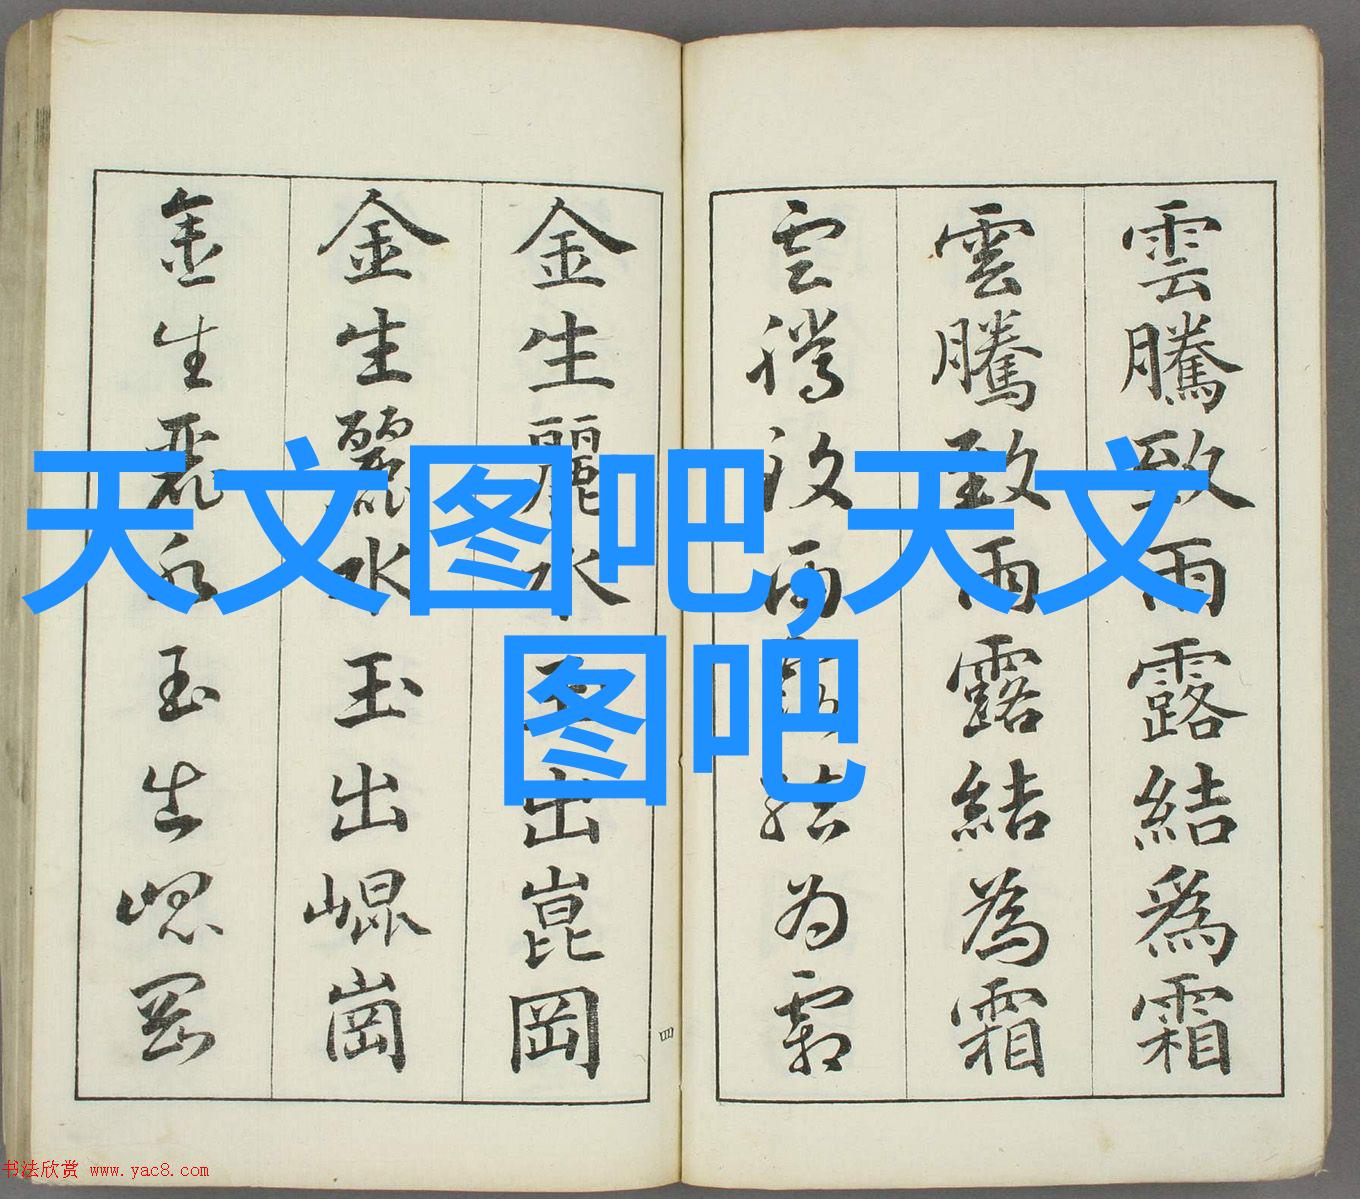 雲騰致雨露結爲霜
雲騰致雨露結為霜
雲騰致雨露結为霜
四
金生麗水玉出崑岡
金生麗水玉出崐崗
金生麗水玉出崐岡
天文图吧,天文
图吧
书法欣赏 www.yac8.com